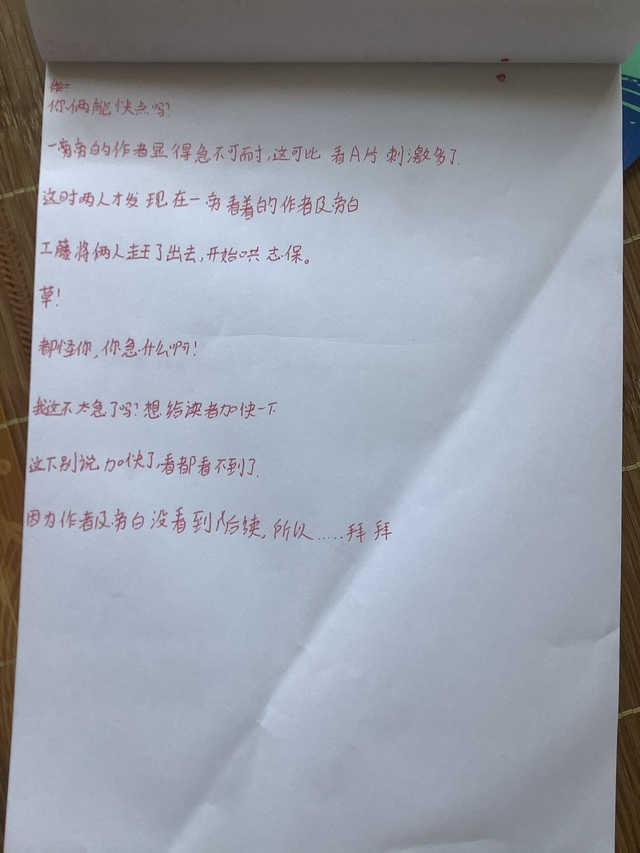 你俩能快点吗?
一旁旁的作者显得急不可耐,这可比看A片刺激多了.
这时两人才发现在一旁看着的作者及旁白
工藤将俩人赶了出去,开始哄志保。
草!
都怪你,你急什么啊!
我这不太急了吗?想给读者加快一下
这下别说加快了,看都看不到了.
因为作者及旁白没看到后续,所以.....拜拜